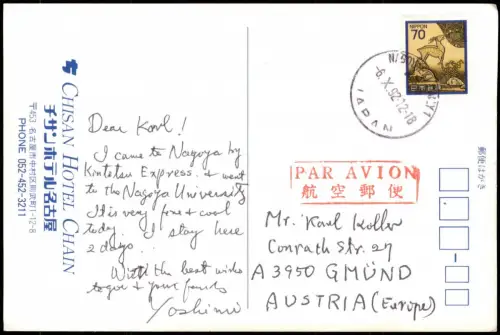 CHISAN HOTEL CHAIN
チサンホテル名古屋
〒453 名古屋市中村区則武町1-12-8
PHONE 052-452-3211
Dear Karl!
I came to Nagoya by
Kintetsu Express. & went
to the Nagoya University
It is very fine & cool
today. I stay here
2 days.
With the best wishes
to you & your family
Yoshimi
NIPPON
70
日本郵便
6.X.92.12-18
JAPAN
郵便はがき
PAR AVION
航空郵便
Mr. Karl Koller
Conrath Str. 27
A 3950 GMÜND
AUSTRIA (Europe)